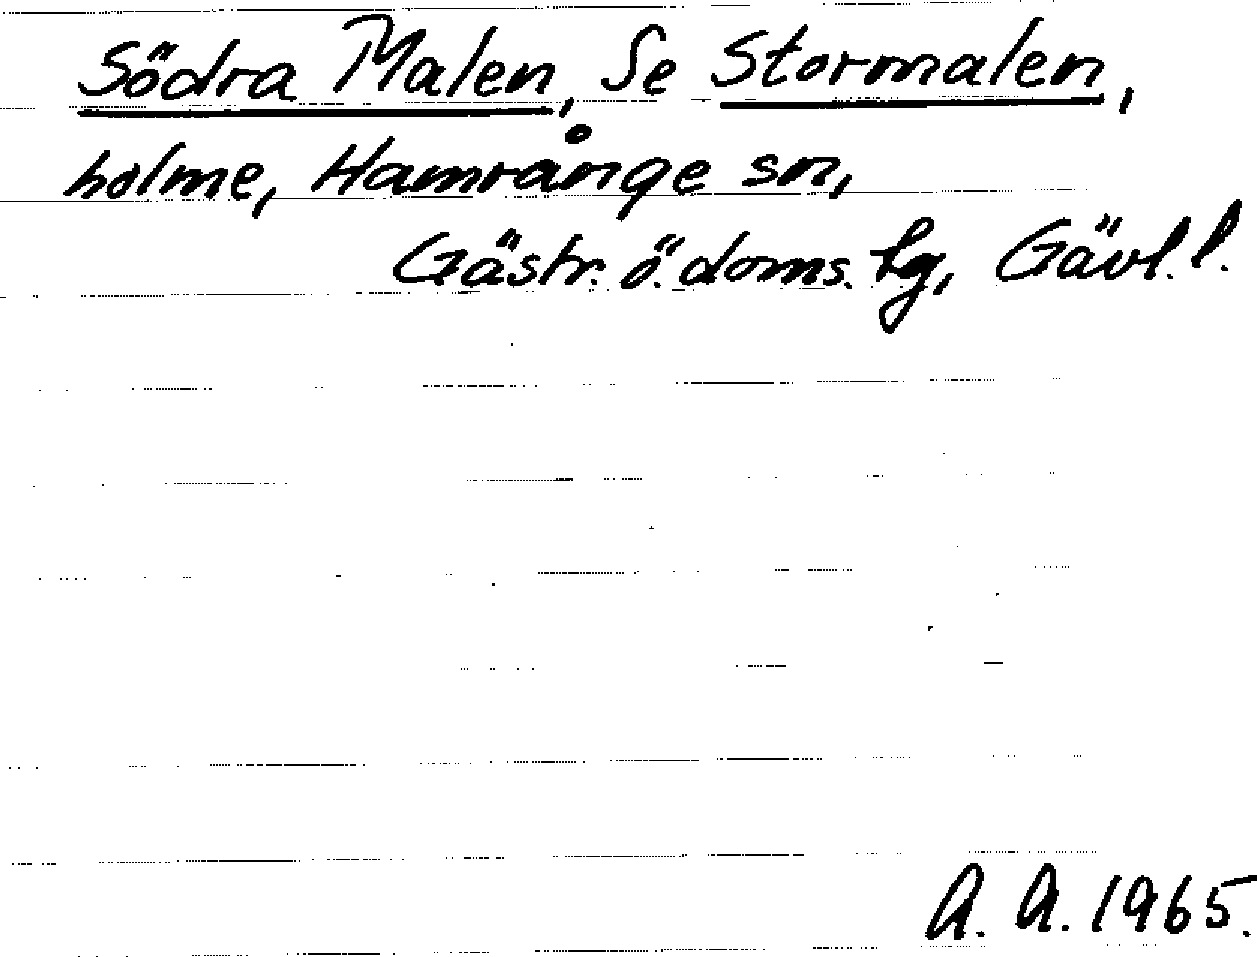 Södra Malen, Se Stormalen,
holme, Hamrånge sn,
Gästr. ö. doms. hg, Gävl. l.
A. A. 1965.